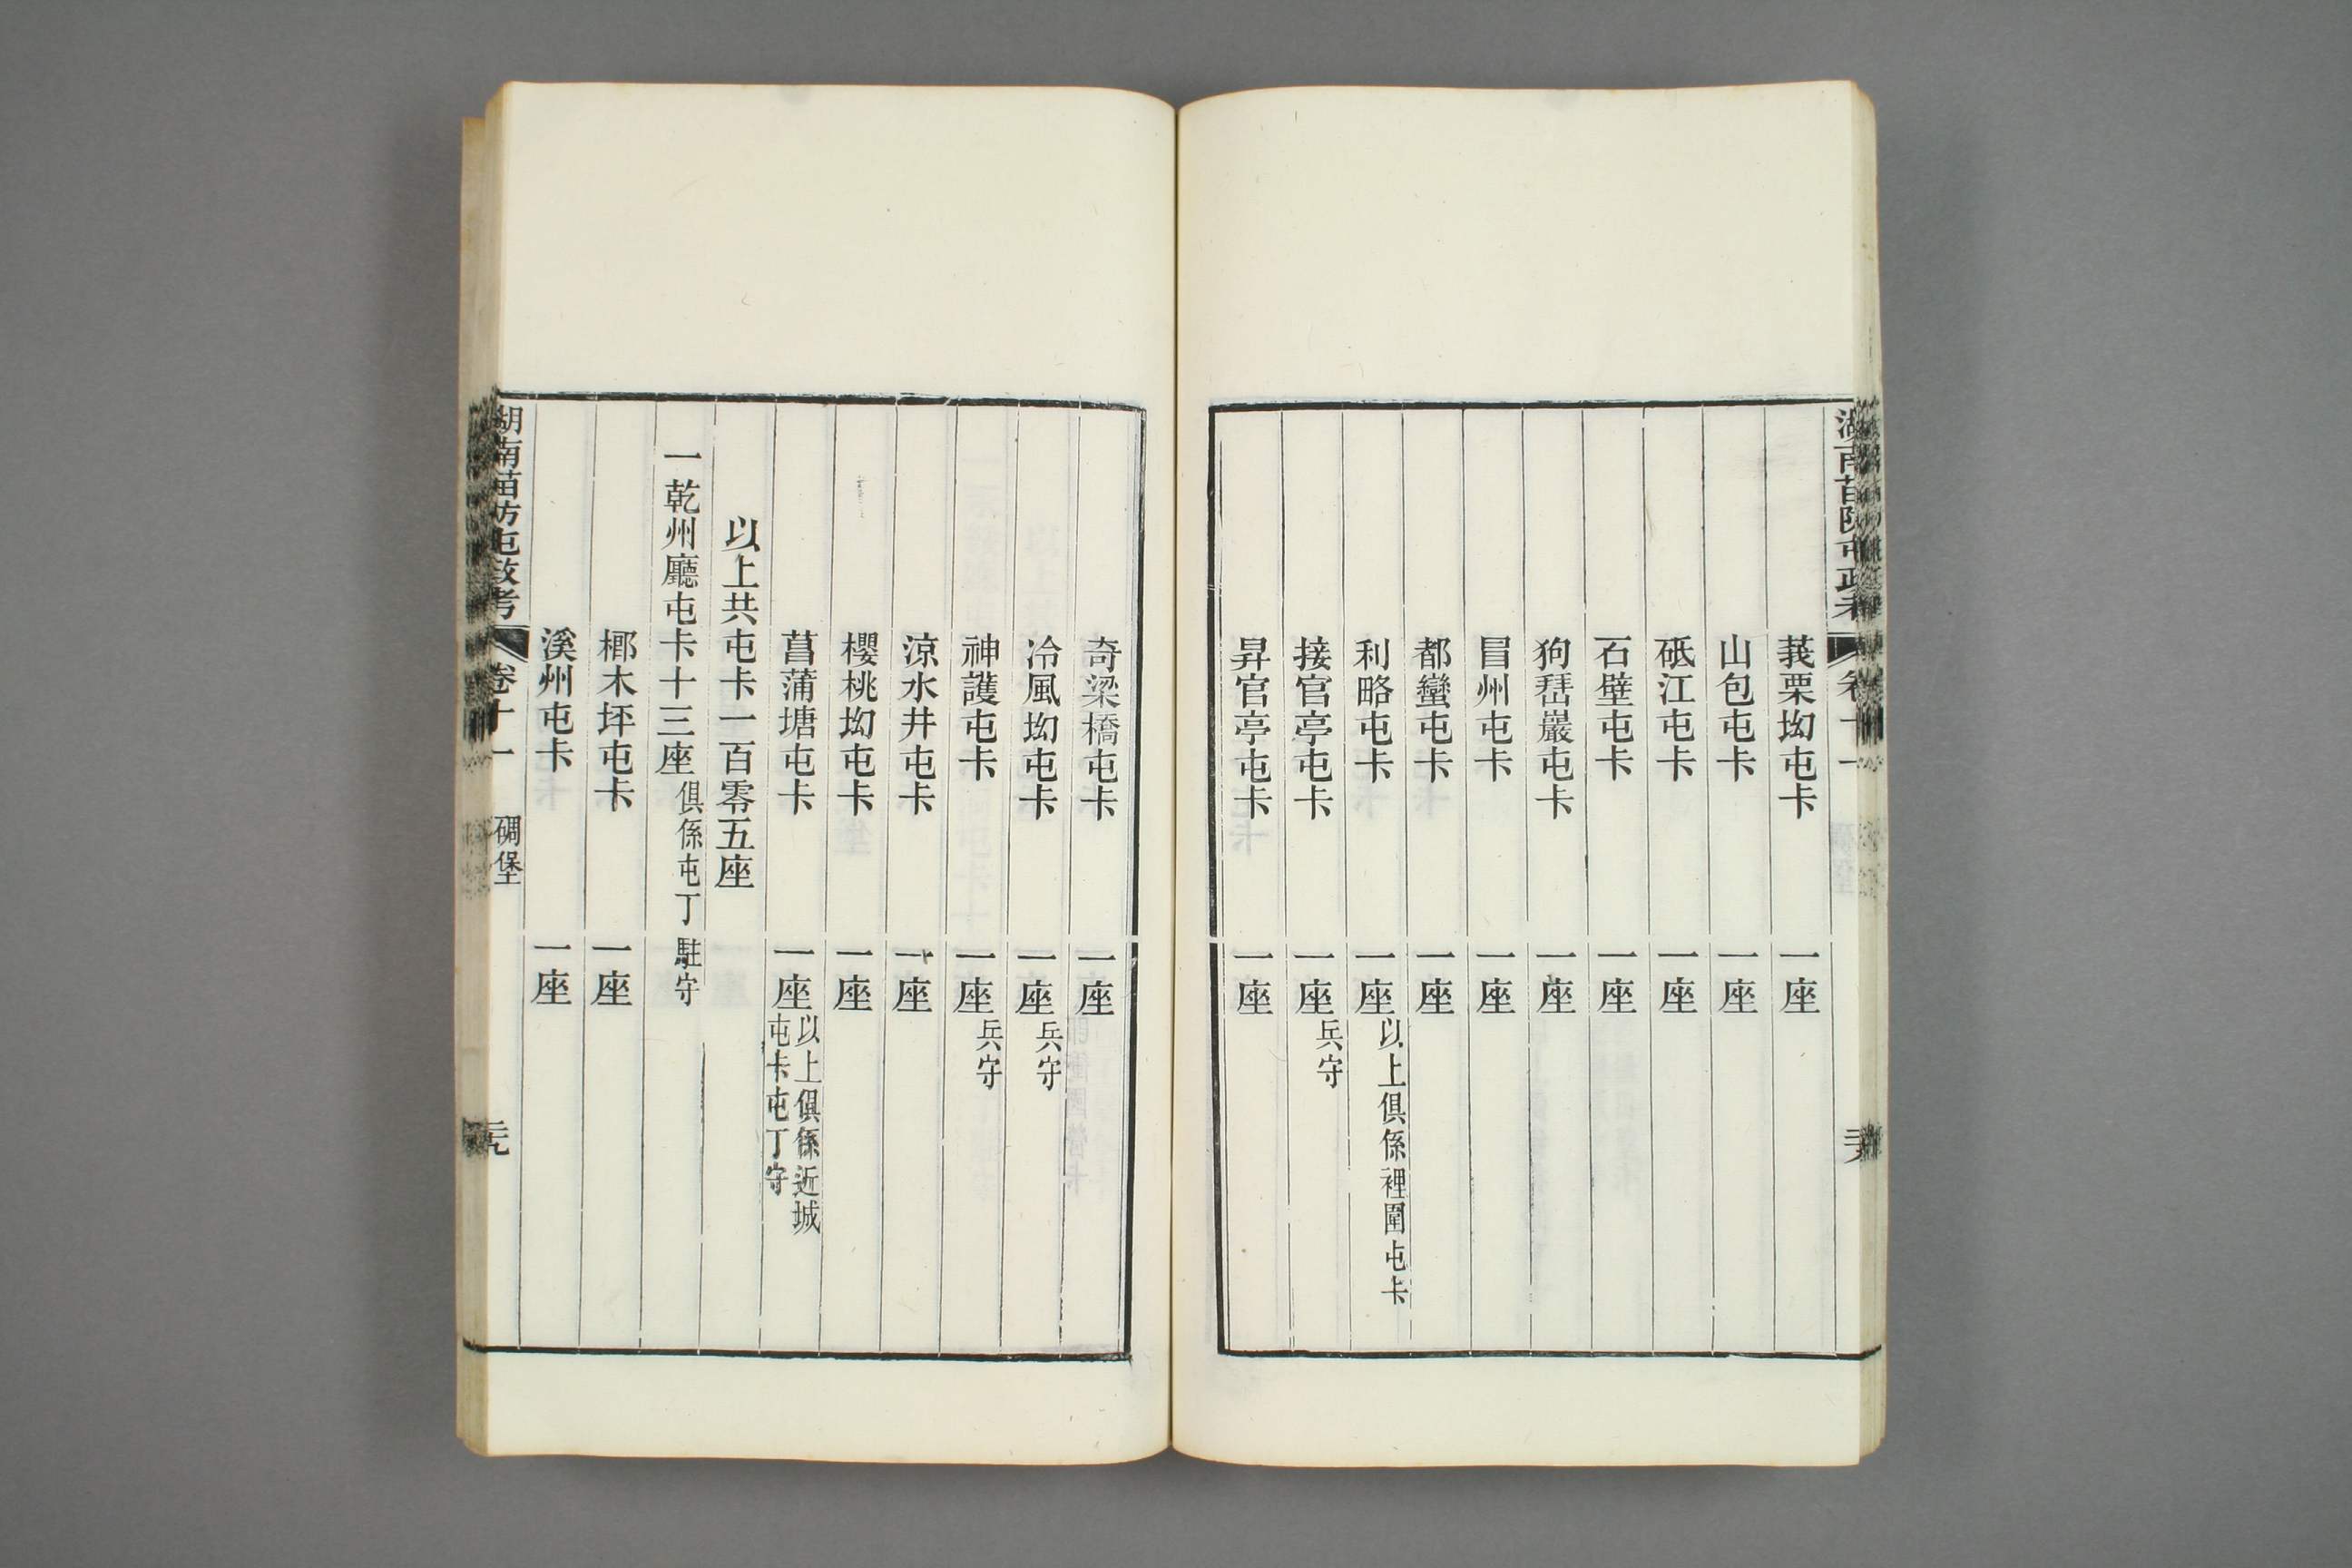 湖南苗防屯政考 卷十一
莪栗坳屯卡 一座
山包屯卡 一座
砥江屯卡 一座
石壁屯卡 一座
狗琶巖屯卡 一座
冒州屯卡 一座
都蠻屯卡 一座
利略屯卡 一座 以上俱係裡圍屯卡
接官亭屯卡 一座 兵守
昇官亭屯卡 一座
奇梁橋屯卡 一座
冷風坳屯卡 一座 兵守
神護屯卡 一座 兵守
涼水井屯卡 一座
櫻桃坳屯卡 一座
菖蒲塘屯卡 一座 以上俱係近城
屯卡屯丁守
以上共屯卡一百零五座
一乾州廳屯卡十三座 俱係屯丁駐守
榔木坪屯卡 一座
溪州屯卡 一座
湖南苗防屯政考 卷十一 碉堡 元